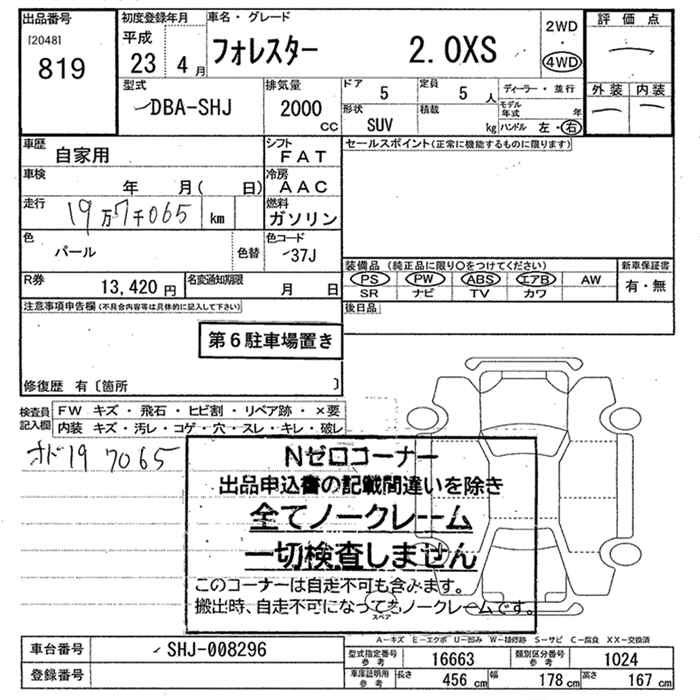 出品番号 初度登録年月 車名・グレード 評価点
[2048] 平成 2WD
819 23 4月 フォレスター 2.0XS ・
4WD
型式 排気量 ドア 定員 ディーラー・並行 外装 内装
DBA-SHJ 2000cc 5 5人 モデル年式 年
形状 積載
SUV kg ハンドル 左・右
車歴 自家用 シフト FAT セールスポイント(正常に機能するものに限ります)
車検 年 月( 日) 冷房 AAC
走行 19万7千065 km 燃料 ガソリン
色 パール 色替 色コード 37J
装備品(純正品に限り○をつけてください) 新車保証書
R券 13,420円 名変通知期限 月 日 PS PW ABS エアB AW 有・無
SR ナビ TV カワ
注意事項申告欄(不具合内容等は具体的に記入して下さい) 後日品
第6駐車場置き
修復歴 有〔箇所 〕
検査員記入欄 FW キズ・飛石・ヒビ割・リペア跡・×要
内装 キズ・汚レ・コゲ・穴・スレ・キレ・破レ
オド19 7065
Nゼロコーナー
出品申込書の記載間違いを除き
全てノークレーム
一切検査しません
このコーナーは自走不可も含みます。
搬出時、自走不可になってもノークレームです。
スペア
A-キズ E-エクボ U-凹み W-補修跡 S-サビ C-腐食 XX-交換済
車台番号 SHJ-008296 型式指定番号参考 16663 類別区分番号参考 1024
登録番号 車庫証明用参考 長さ 456cm 幅 178cm 高さ 167cm